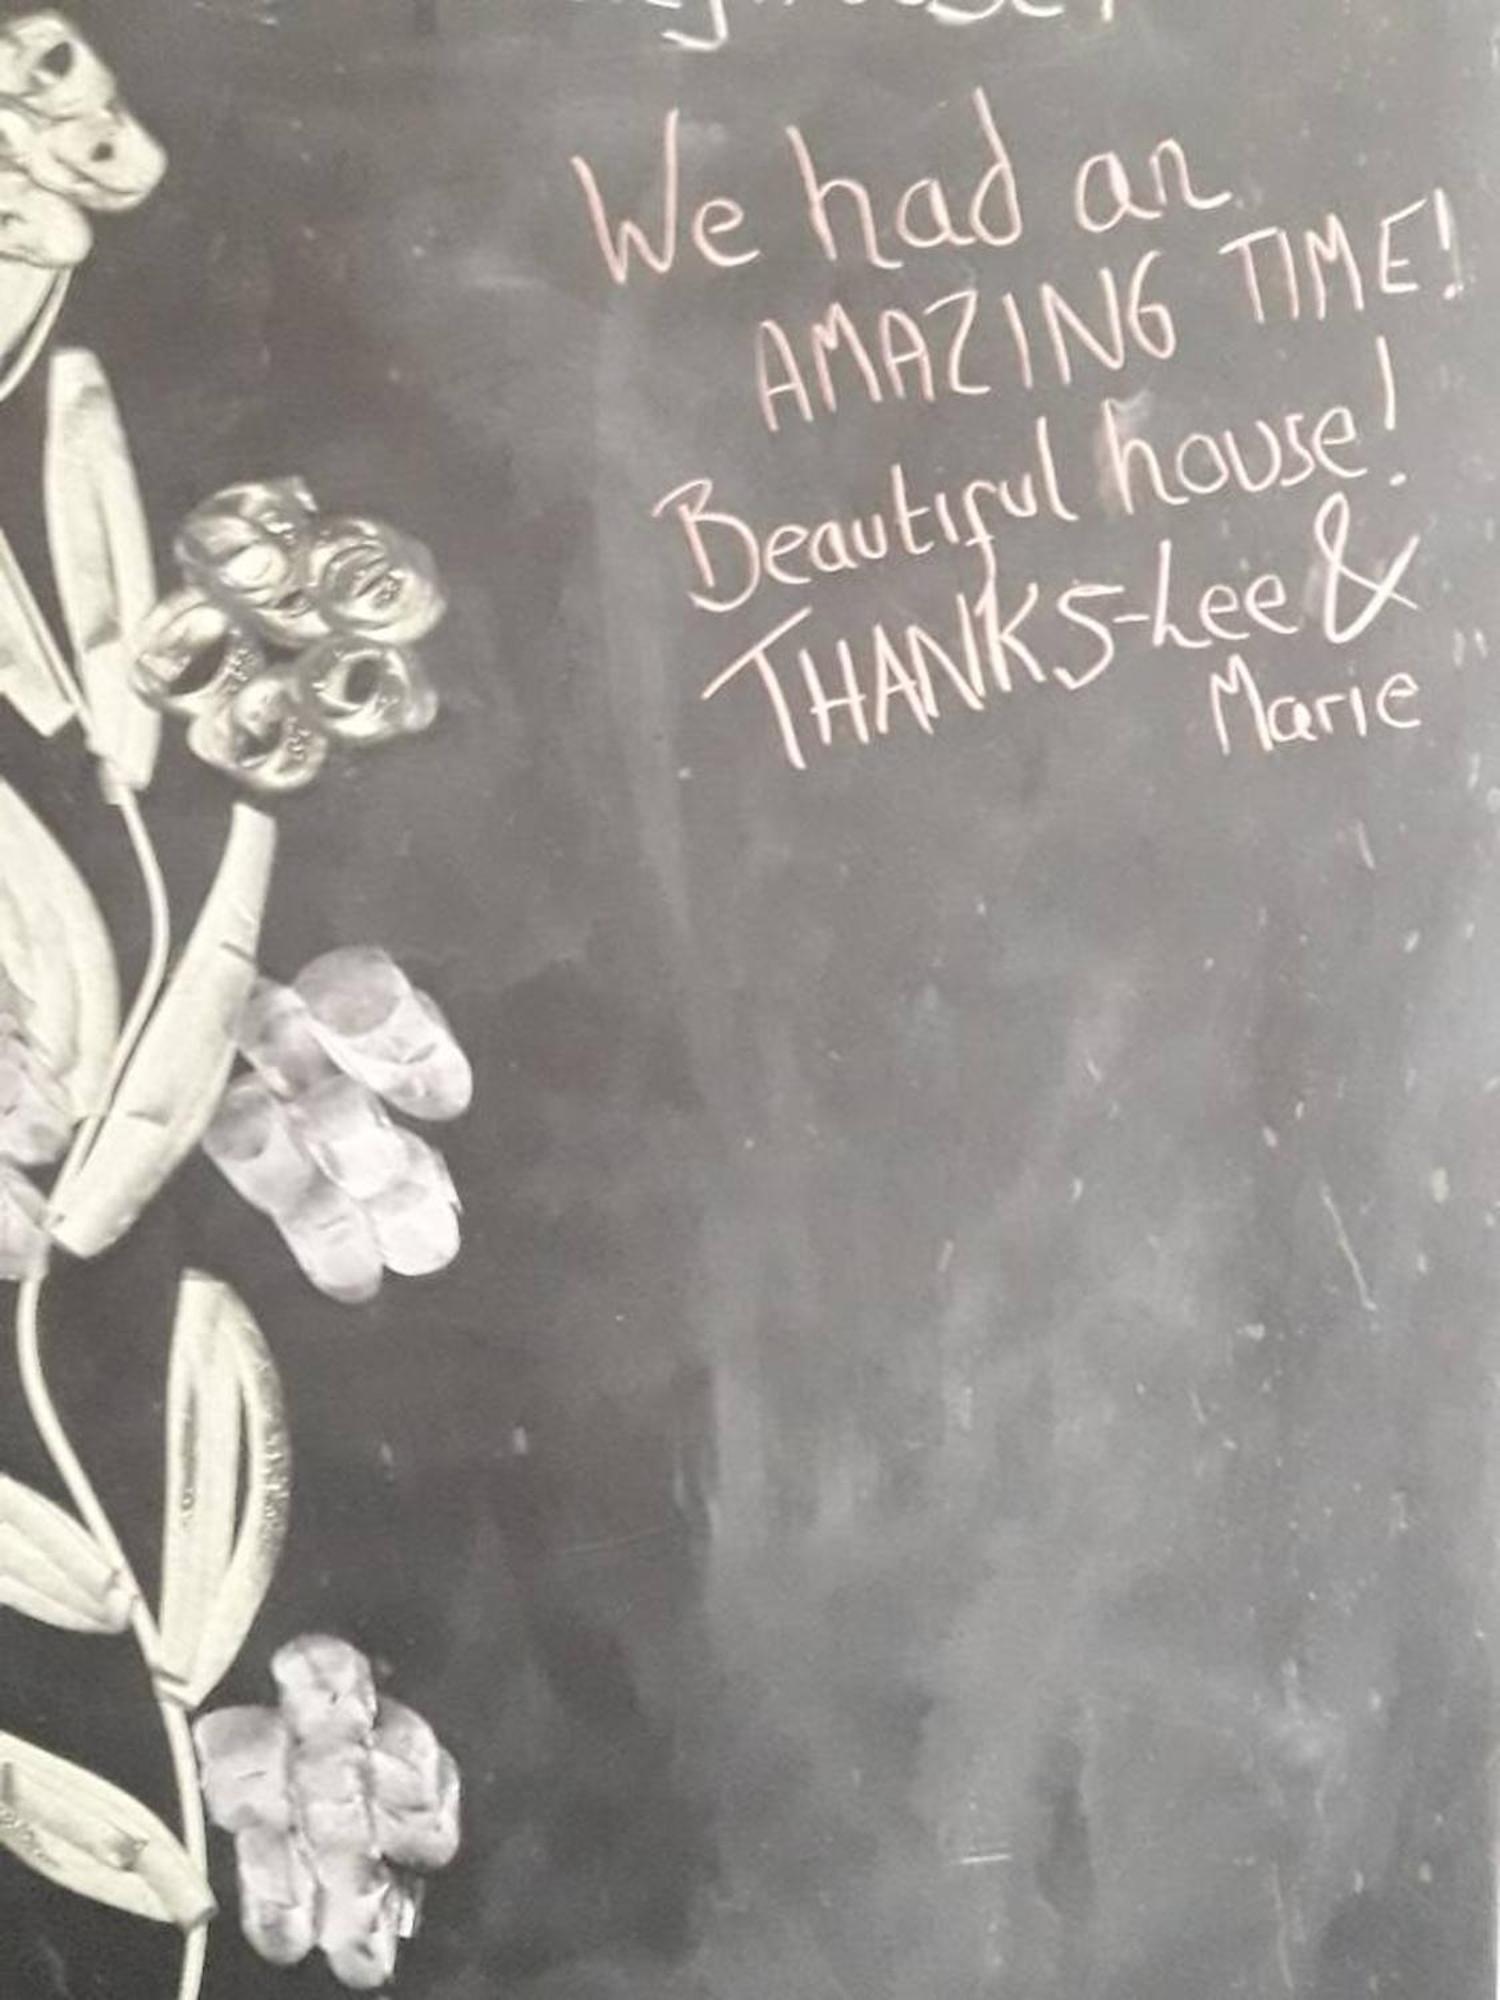 We had an
AMAZING TIME!
Beautiful house!
THANKS-Lee &
Marie